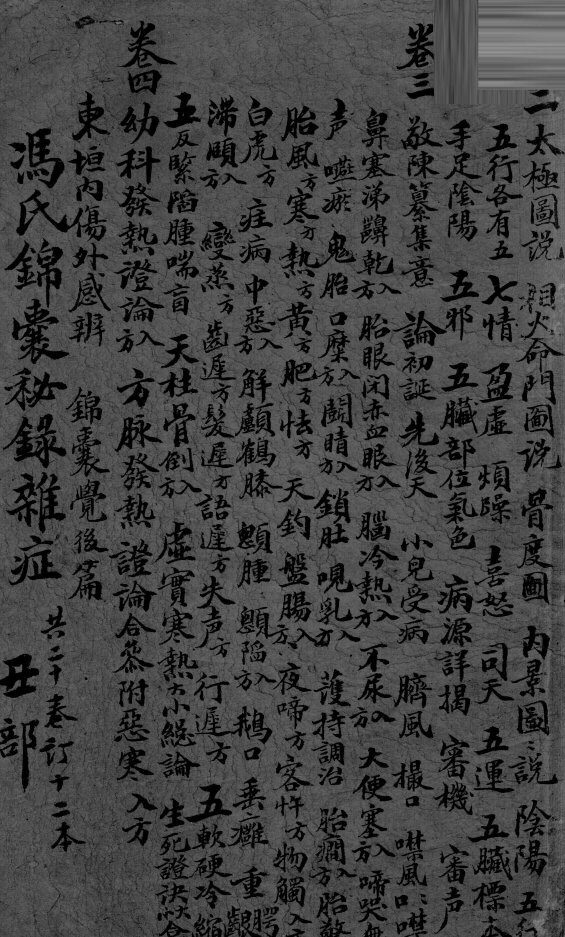 二 太極圖説 相火命門圖説 骨度圖 内景圖説 陰陽 五行
五行各有五 七情 盈虛 煩躁 喜怒 司天 五運 五臟標本
手足陰陽 五邪 五臟部位氣色 病源詳揭 審機 審声
卷三 敬陳纂集意 論初誕 先後天 小兒受病 臍風 撮口 噤風口噤
鼻塞涕齆乾入方 胎眼閉赤血眼入方 腦冷熱入方 不尿入方 大便塞入方 啼哭無
声 嚥瘀 鬼胎 口糜入方 鬭睛入方 鎖肚 哯乳入方 護持調治 胎癇入方 胎驚
胎風方 寒方 熱方 黃方 肥方 怯方 天釣 盤腸入方 夜啼方 客忤方 物觸入方
白虎方 疰病 中惡入方 解顱鶴膝 顖腫 顖陷入方 鵝口 垂癰 重齶
滞頤入方 變蒸方 齒遲方 髮遲方 語遲方 失声方 行遲方 五軟硬冷縮
五反緊陷腫喘盲 天柱骨倒入方 虛實寒熱大小總論 生死證訣
卷四 幼科發熱證論入方 方脉發熱證論合叅附惡寒入方
東垣内傷外感辨 錦囊覺後篇
馮氏錦囊秘錄雜症 共二十卷訂十二本 丑部